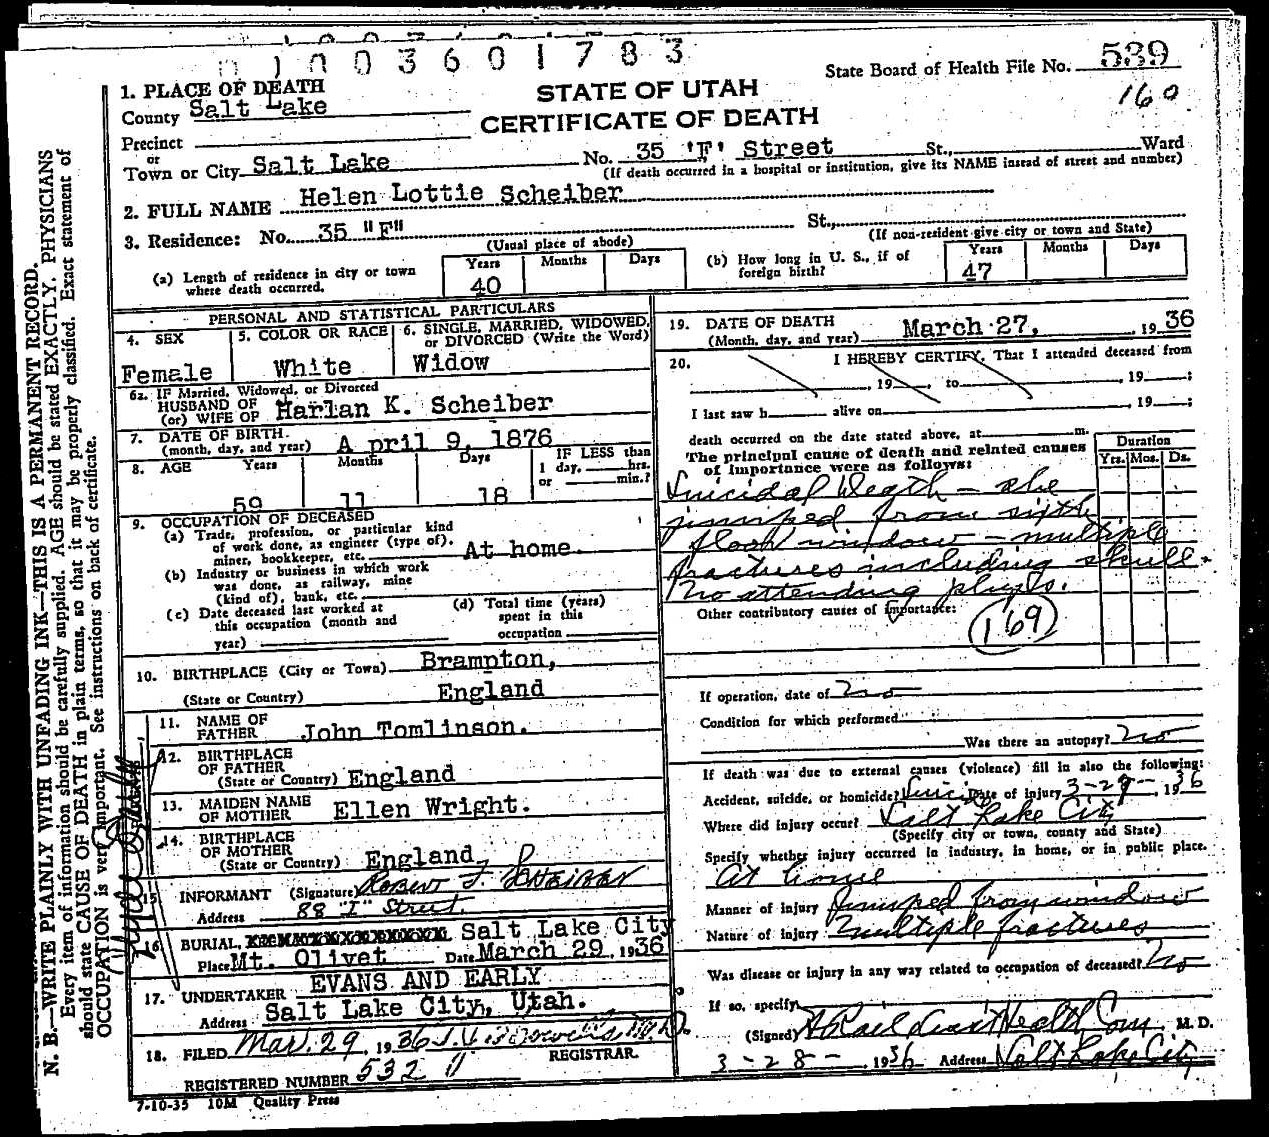 1003601783
State Board of Health File No. 539
160
STATE OF UTAH
CERTIFICATE OF DEATH
1. PLACE OF DEATH
County Salt Lake
Precinct
or
Town or City Salt Lake No. 35 'F' Street St., Ward
(If death occurred in a hospital or institution, give its NAME instead of street and number)
2. FULL NAME Helen Lottie Scheiber
3. Residence: No. 35 "F" St.,
(Usual place of abode) (If non-resident give city or town and State)
(a) Length of residence in city or town where death occurred. Years 40 Months Days
(b) How long in U. S., if of foreign birth? Years 47 Months Days
PERSONAL AND STATISTICAL PARTICULARS
4. SEX Female
5. COLOR OR RACE White
6. SINGLE, MARRIED, WIDOWED, or DIVORCED (Write the Word) Widow
6a. IF Married, Widowed, or Divorced
HUSBAND OF
(or) WIFE OF Harlan K. Scheiber
7. DATE OF BIRTH
(month, day, and year) A pril 9, 1876
8. AGE Years 59 Months 11 Days 18 IF LESS than 1 day, hrs. or min.?
9. OCCUPATION OF DECEASED
(a) Trade, profession, or particular kind
of work done, as engineer (type of),
miner, bookkeeper, etc. At home.
(b) Industry or business in which work
was done, as railway, mine
(kind of), bank, etc.
(c) Date deceased last worked at
this occupation (month and
year)
(d) Total time (years)
spent in this
occupation
10. BIRTHPLACE (City or Town) Brampton,
(State or Country) England
11. NAME OF
FATHER John Tomlinson.
12. BIRTHPLACE
OF FATHER
(State or Country) England
13. MAIDEN NAME
OF MOTHER Ellen Wright.
14. BIRTHPLACE
OF MOTHER
(State or Country) England
15. INFORMANT (Signature) Robert J. Scheiber
Address 88 "I" Street.
16. BURIAL, Salt Lake City
Place Mt. Olivet Date March 29, 1936
17. UNDERTAKER EVANS AND EARLY
Address Salt Lake City, Utah.
18. FILED Mar. 29, 1936 M.D.
REGISTRAR.
REGISTERED NUMBER 532
7-10-35 10M Quality Press
19. DATE OF DEATH
(Month, day, and year) March 27, , 19 36
20. I HEREBY CERTIFY, That I attended deceased from
, 19 , to , 19 ;
I last saw h alive on , 19 ;
death occurred on the date stated above, at m.
The principal cause of death and related causes
of importance were as follows:
Duration
Yrs. Mos. Ds.
Suicidal Death - she
jumped from sixth
floor window - multiple
fractures including skull.
No attending physn.
Other contributory causes of importance:
169
If operation, date of no
Condition for which performed
Was there an autopsy? no
If death was due to external causes (violence) fill in also the following:
Accident, suicide, or homicide? Suicide Date of injury 3-27-, 1936
Where did injury occur? Salt Lake City
(Specify city or town, county and State)
Specify whether injury occurred in industry, in home, or in public place.
At home
Manner of injury Jumped from window
Nature of injury Multiple fractures
Was disease or injury in any way related to occupation of deceased? No
If so, specify
(Signed) Health Com. M. D.
3-28-, 1936 Address Salt Lake City
N. B.—WRITE PLAINLY WITH UNFADING INK—THIS IS A PERMANENT RECORD.
Every item of information should be carefully supplied. AGE should be stated EXACTLY. PHYSICIANS
should state CAUSE OF DEATH in plain terms, so that it may be properly classified. Exact statement of
OCCUPATION is very important. See instructions on back of certificate.